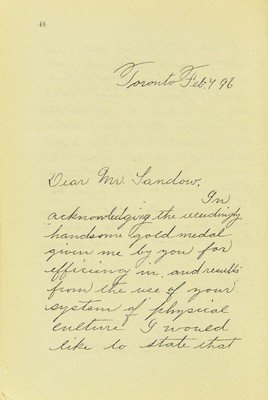 48
Toronto Feb. 7 96
Dear Mr. Sandow,
In
acknowledging the exceedingly
handsome gold medal
given me by you for
efficiency in, and results
from the use of your
system of physical
culture I would
like to state that